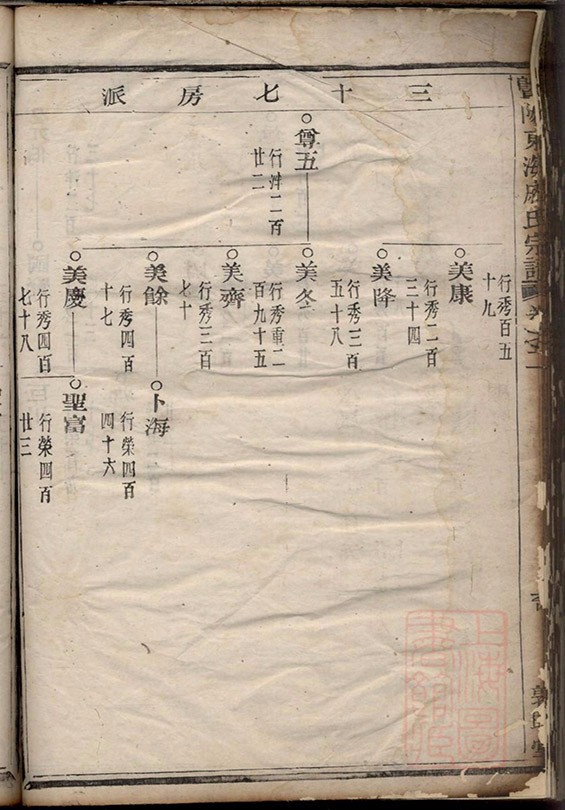 三十七房派
尊五
行湖二百
廿二
行秀百五
十九
美康
行秀二百
三十四
美降
行秀三百
五十八
美冬
行秀重二
百九十五
美齊
行秀三百
七十
美餘
行秀四百
十七
美慶
行秀四百
七十八
卜海
行榮四百
四十六
聖富
行榮四百
廿三
東海
氏宗譜
上海圖
書館